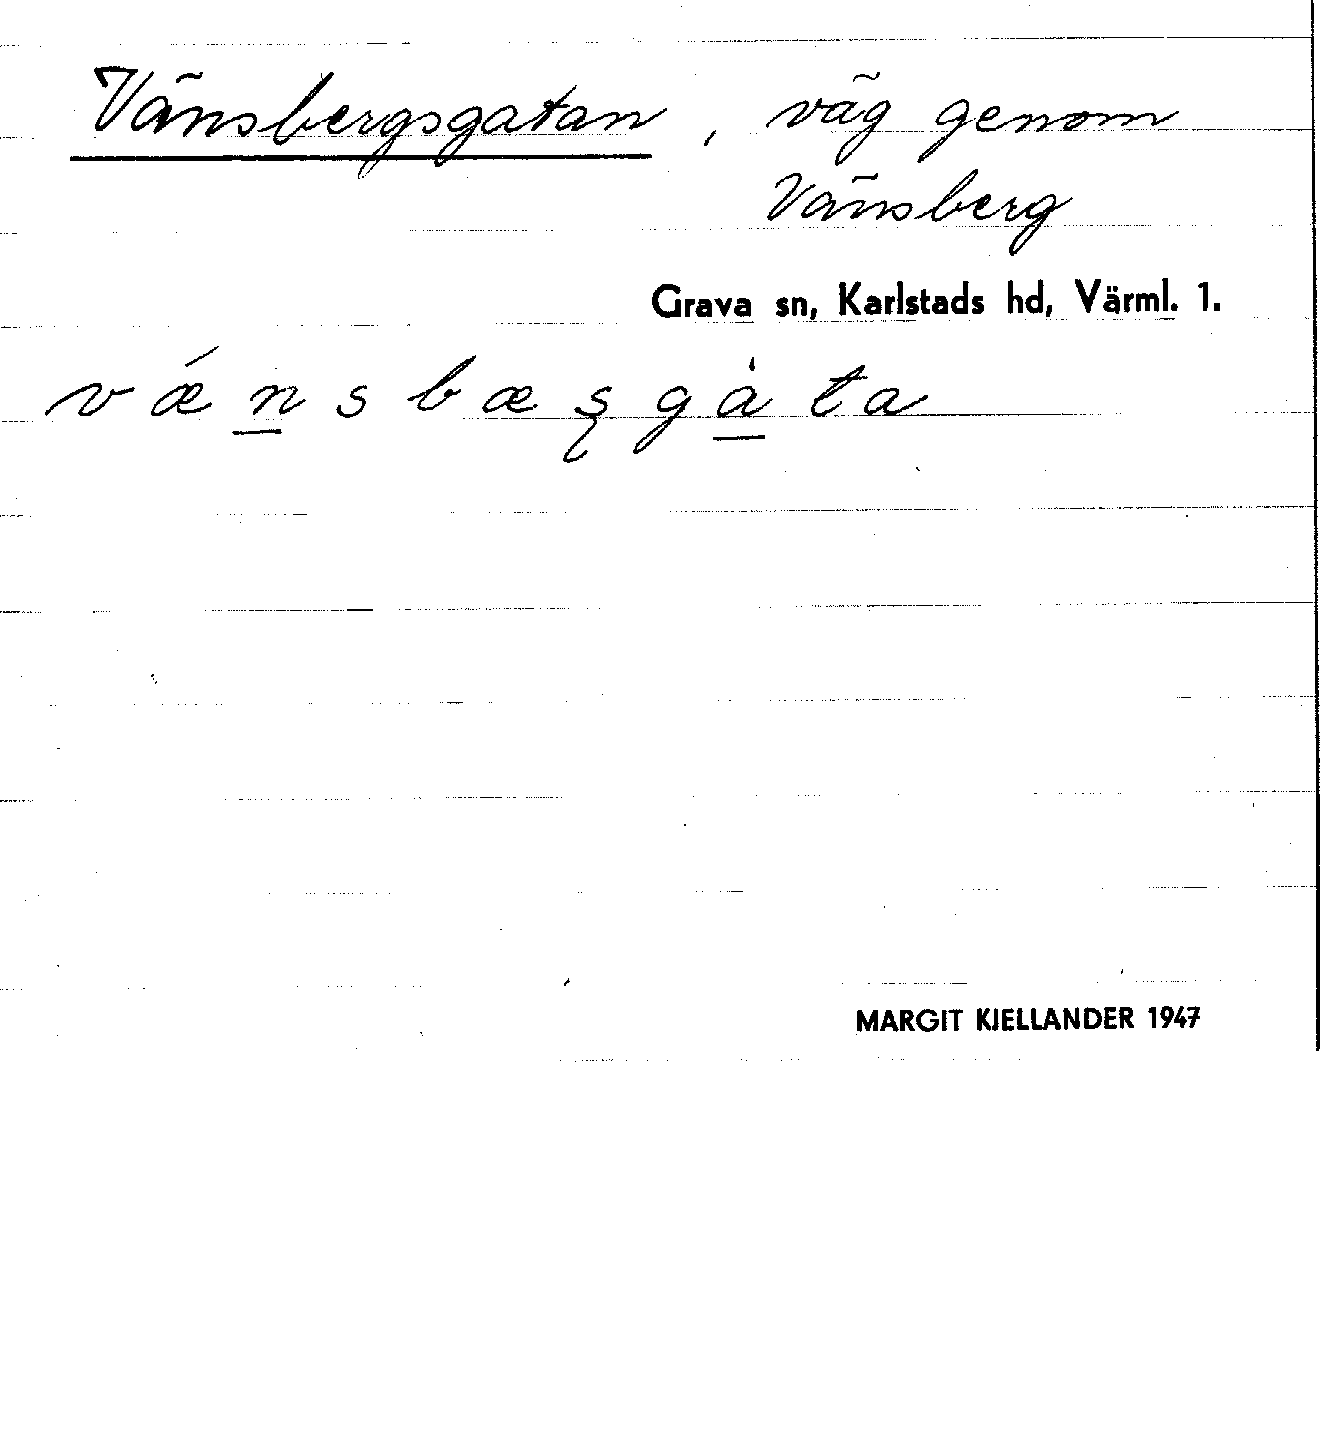 Vänsbergsgatan, väg genom
Vänsberg
Grava sn, Karlstads hd, Värml. 1.
vǽn̲sbæʂgà̲ta
MARGIT KJELLANDER 1947